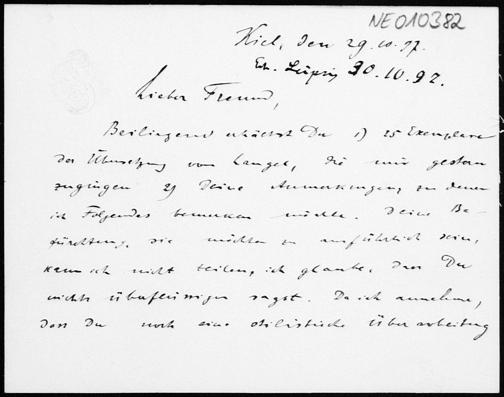 NE010382
Kiel, den 29.10.97.
Eh. Leipzig 30.10.97.
Lieber Freund,
Beiliegend erhältst Du 1) 25 Exemplare
der Übersetzung von Langel, die mir gestern
zugingen 2) Deine Anmerkungen, zu denen
ich Folgendes bemerken möchte. Deine Be-
fürchtung, sie möchten zu ausführlich sein,
kann ich nicht teilen, ich glaube, dass Du
nichts überflüssiges sagst. Da ich annehme,
dass Du noch eine stilistische Überarbeitung